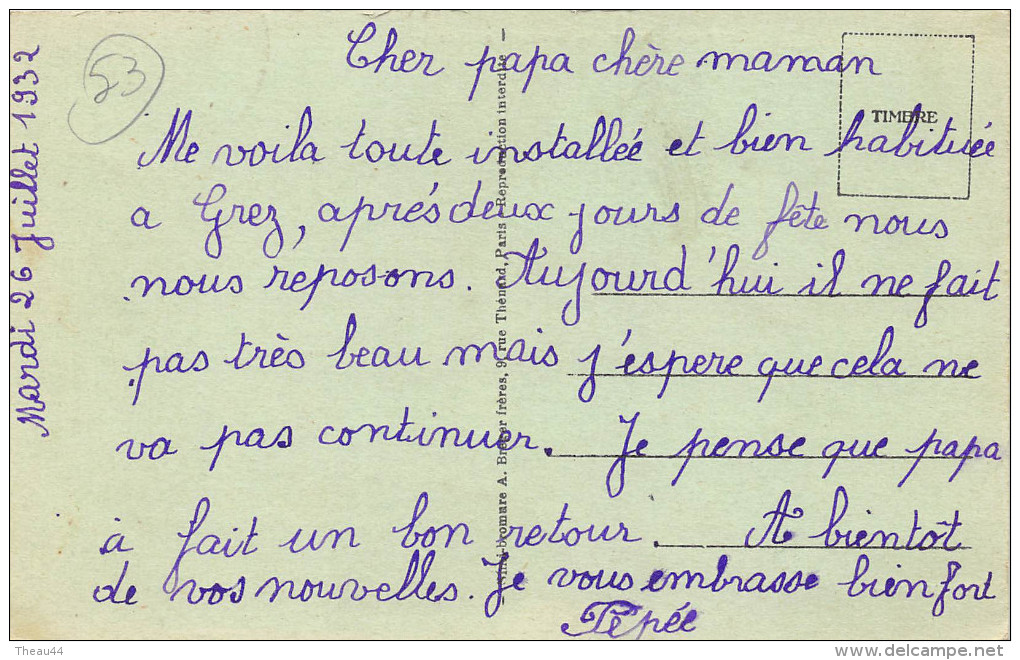 Mardi 26 Juillet 1932
53
Cher papa chère maman
TIMBRE
Me voila toute installée et bien habituée
a Grez, aprés deux jours de fête nous
nous reposons. Aujourd'hui il ne fait
pas très beau mais j'espere que cela ne
va pas continuer. Je pense que papa
à fait un bon retour. A bientôt
de vos nouvelles. Je vous embrasse bien fort
Pépée
A. Breger frères, 9, rue Thénard, Paris - Reproduction interdite
Theau44
www.delcampe.net